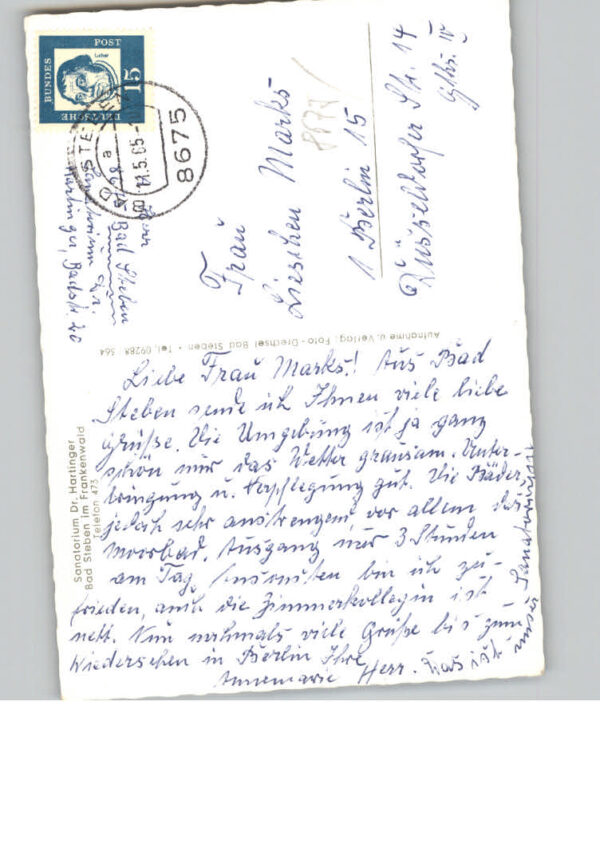 DEUTSCHE
BUNDES
POST
15
Luther
8675
a
11.5.65
Herr
8675 Bad Steben
Sanatorium Dr.
Hartinger, Badstr. 20
Frau
Lieschen Marks
1 Berlin 15
Düsseldorfer Str. 14
Gths. IV
8677
Aufnahme u. Verlag: Foto-Drechsel Bad Steben • Tel. 09288 / 364
Sanatorium Dr. Hartinger
Bad Steben im Frankenwald
Telefon 473
Liebe Frau Marks! Aus Bad
Steben sende ich Ihnen viele liebe
Grüße. Die Umgebung ist ja ganz
schön nur das Wetter grausam. Unter-
bringung u. Verpflegung gut. Die Bäder
jedoch sehr anstrengend vor allem das
Moorbad. Ausgang nur 3 Stunden
am Tag. Ansonsten bin ich zu-
frieden, auch die Zimmerkollegin ist
nett. Nun nochmals viele Grüße bis zum
Wiedersehen in Berlin Ihre
Annemarie Herr. Das ist unser Sanatorium